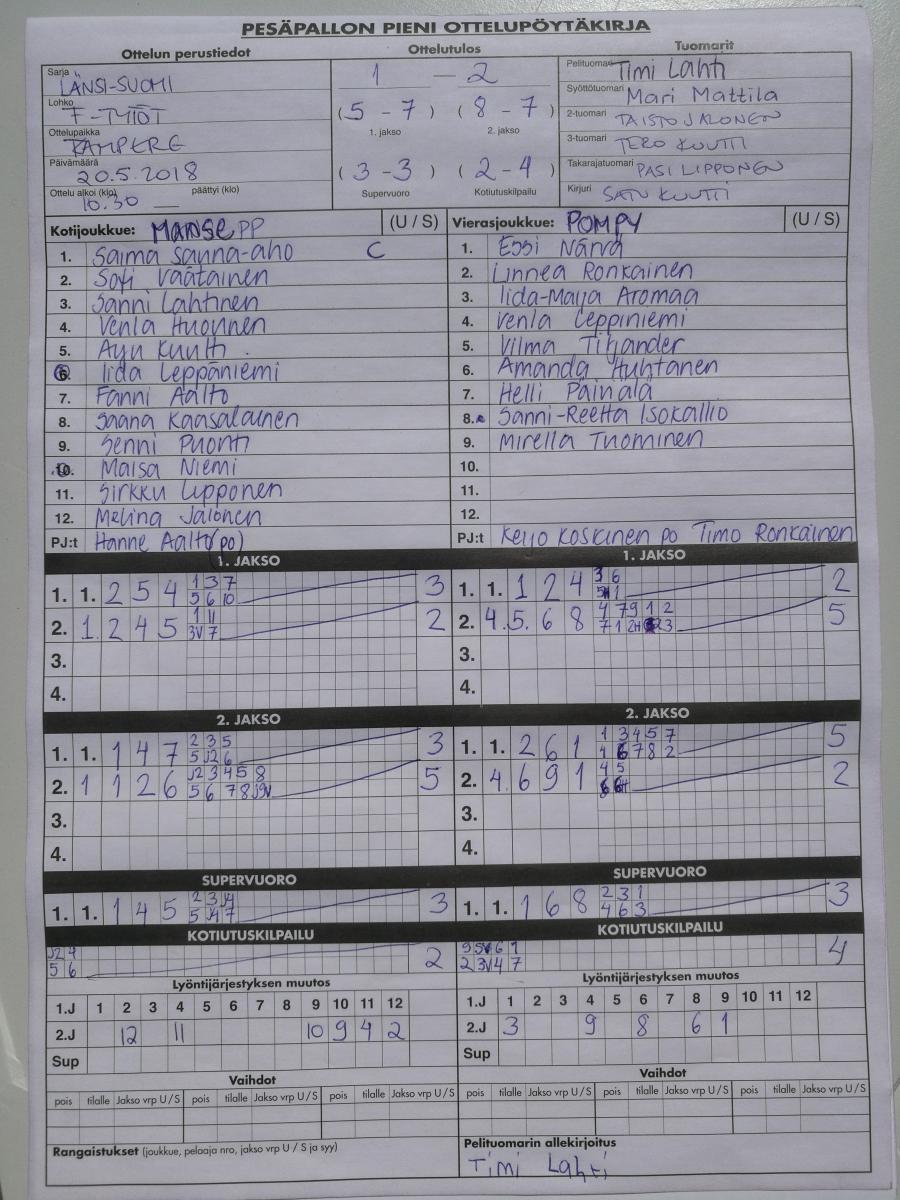 PESÄPALLON PIENI OTTELUPÖYTÄKIRJA
Ottelun perustiedot
Sarja LÄNSI-SUOMI
Lohko F-TYTÖT
Ottelupaikka TAMPERE
Päivämäärä 20.5.2018
Ottelu alkoi (klo) 10.30 päättyi (klo) —
Ottelutulos
1 — 2
(5 - 7) (8 - 7)
1. jakso 2. jakso
(3 - 3) (2 - 4)
Supervuoro Kotiutuskilpailu
Tuomarit
Pelituomari Timi Lahti
Syöttötuomari Mari Mattila
2-tuomari TAISTO JALONEN
3-tuomari TERO KUUTTI
Takarajatuomari PASI LIPPONEN
Kirjuri SATU KUUTTI
Kotijoukkue: MANSE PP (U / S)
1. Saima Sauna-aho C
2. Sofi Väätäinen
3. Sanni Lahtinen
4. Venla Huovinen
5. Ayu Kuutti
6. Iida Leppäniemi
7. Fanni Aalto
8. Saana Kaasalainen
9. Senni Puonti
10. Maisa Niemi
11. Sirkku Lipponen
12. Melina Jalonen
PJ:t Hanne Aalto (po)
Vierasjoukkue: POMPY (U / S)
1. Essi Närvä
2. Linnea Ronkainen
3. Iida-Maija Aromaa
4. Venla Leppiniemi
5. Vilma Tiljander
6. Amanda Huhtanen
7. Helli Päinälä
8. Sanni-Reetta Isokallio
9. Mirella Tuominen
10.
11.
12.
PJ:t Keijo Koskinen po Timo Ronkainen
1. JAKSO
1. 1. 2 5 4 1 3 7 3
5 6 10
2. 1. 2 4 5 1 11 2
3V 7
3.
4.
1. JAKSO
1. 1. 1 2 4 3 6 2
1
2. 4. 5. 6 8 4 7 9 1 2 5
7 1 2H 3
3.
4.
2. JAKSO
1. 1. 1 4 7 2 3 5 3
5 J2 6
2. 1 1 2 6 J2 3 4 5 8 5
5 6 7 8 J9V
3.
4.
2. JAKSO
1. 1. 2 6 1 1 3 4 5 7 5
4 6 7 8 2
2. 4. 6 9 1 4 5 2
6
3.
4.
SUPERVUORO
1. 1. 1 4 5 2 3 J4 3
5 J4 7
SUPERVUORO
1. 1. 1 6 8 2 3 1 3
4 6 3
KOTIUTUSKILPAILU
J2 4 2
5 6
KOTIUTUSKILPAILU
9 5V 6 1 4
2 3V 4 7
Lyöntijärjestyksen muutos
1.J 1 2 3 4 5 6 7 8 9 10 11 12
2.J 12 11 10 9 4 2
Sup
Lyöntijärjestyksen muutos
1.J 1 2 3 4 5 6 7 8 9 10 11 12
2.J 3 9 8 6 1
Sup
Vaihdot
pois tilalle Jakso vrp U / S pois tilalle Jakso vrp U / S pois tilalle Jakso vrp U / S
Vaihdot
pois tilalle Jakso vrp U / S pois tilalle Jakso vrp U / S pois tilalle Jakso vrp U / S
Rangaistukset (joukkue, pelaaja nro, jakso vrp U / S ja syy)
Pelituomarin allekirjoitus
Timi Lahti